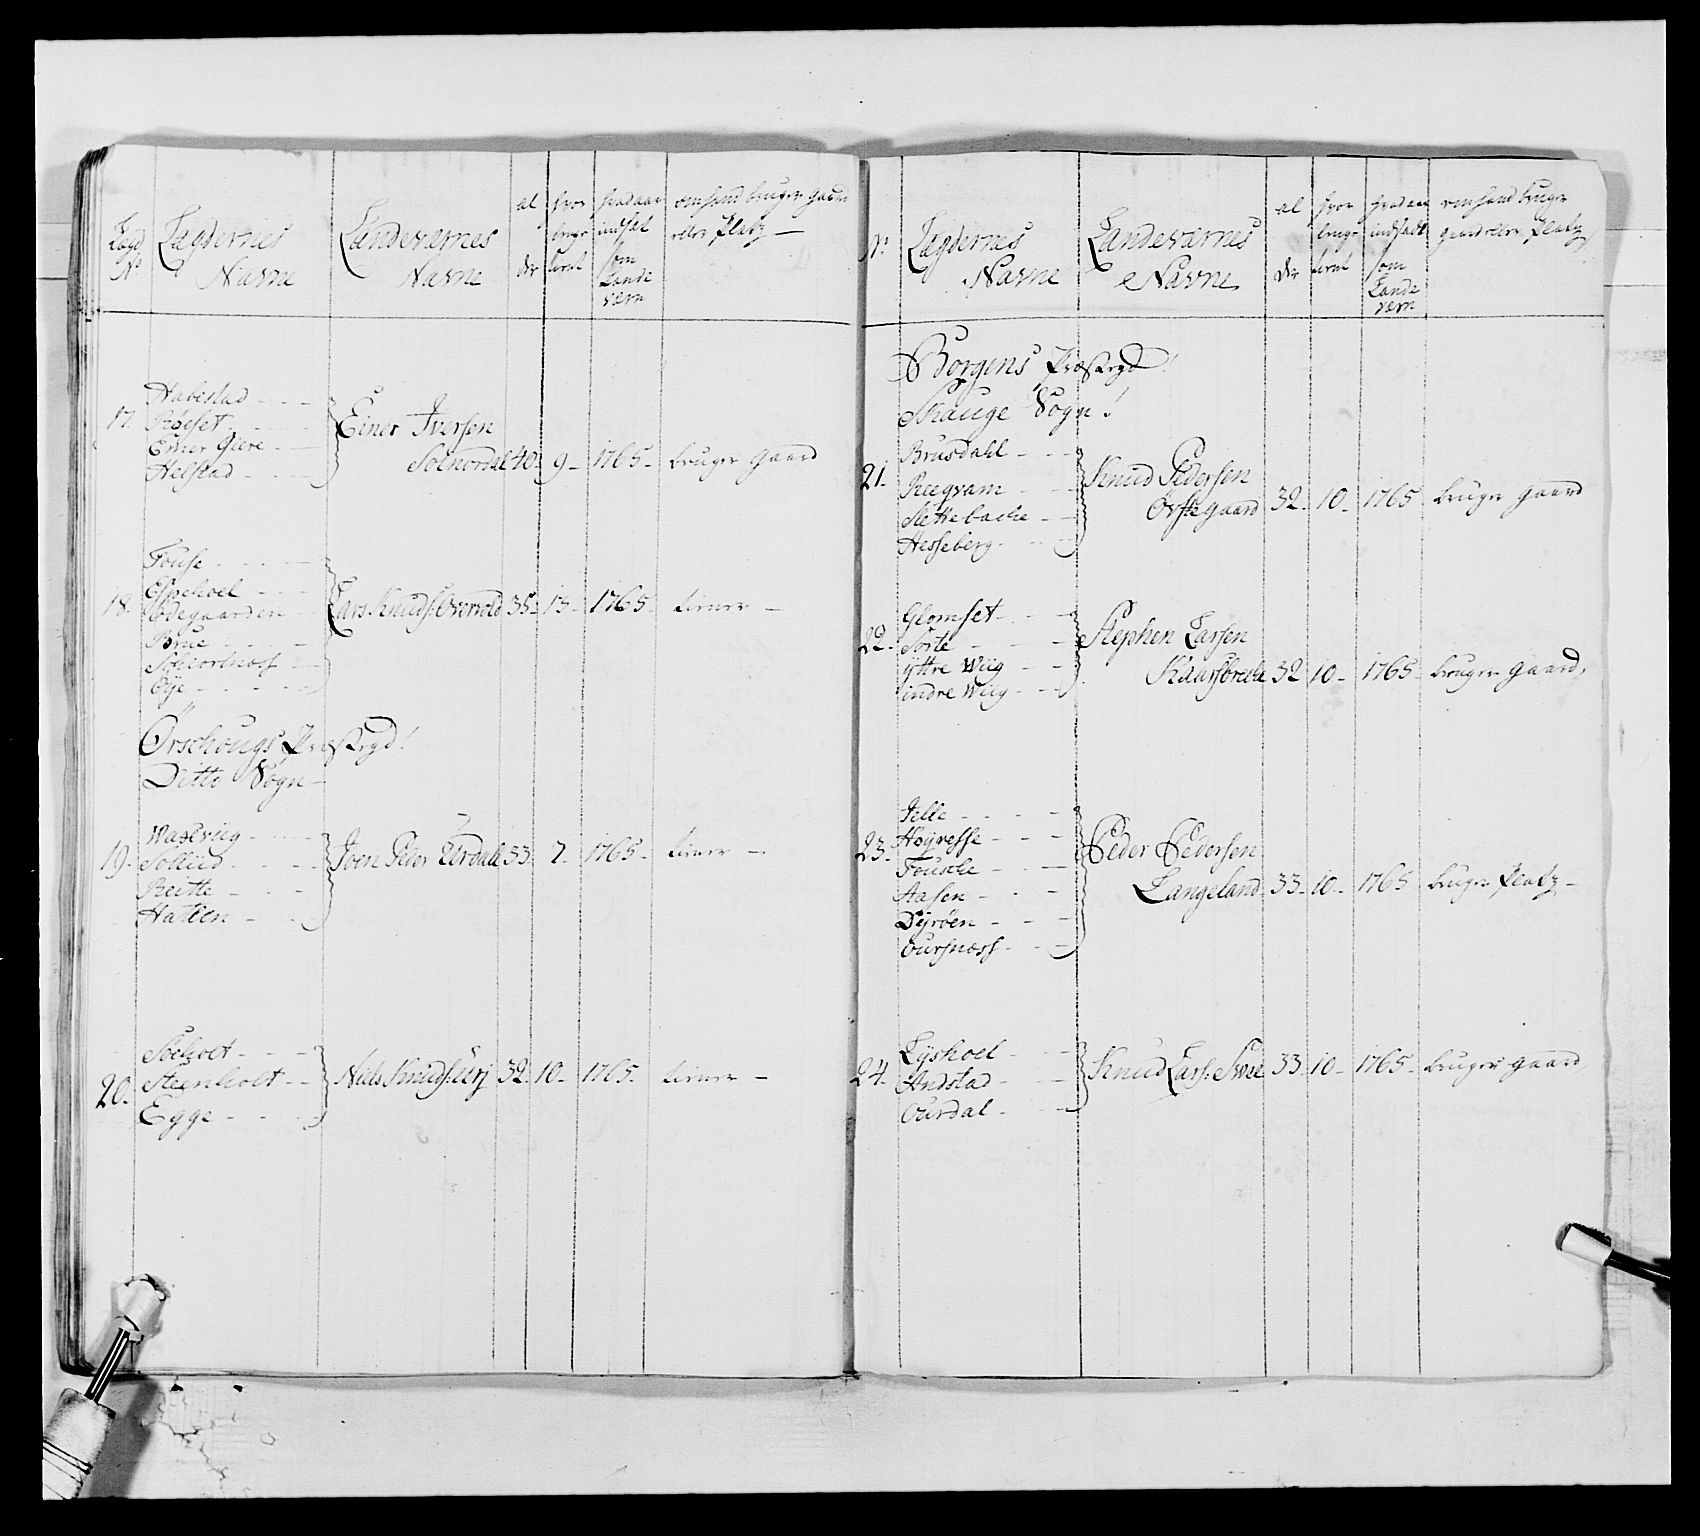 Lægd No
Lægdernes Navne
Landeværnes Navne
al der
hvor længe tient
hvad aar indsat som Lande værn
om hand bruger gaard eller Platz
17.
Habestad
Röeset
Einer Giere
Helstad
Einer Iversen
Solnordal 40. 9. 1765. bruger Gaard
18.
Fouse
Espehoel
Ödegaarden
Brue
Schiortnæss
Öye
Lars Knuds: Overvold 35. 13. 1765. tiener
Örschougs Præstegd!
Ditto Sogn
19.
Wagsvieg
Solliid
Reitte
Hatlen
Joen Peder Urdahl 33. 7. 1765. tiener
20.
Söeholt
Steenholt
Egge
Niels Knuds: Urj 32. 10. 1765. tiener
No
Lægdernes Navne
Landeværnes Navne
al der
hvor længe tient
hvad aar indsadt som Lande værn
om hand bruger gaard eller Platz
Borgens Præstegd!
Skauge Sogn!
21.
Brusdahl
Reeqvam
Slettebache
Hesseberg
Knud Pedersen
Öfstegaard 32. 10. 1765 bruger gaard
22.
Glomset
Sorte
yttre Wiig
indre Wiig
Stephen Larsen
Kaarsbrecke 32 10. 1765. bruger gaard
23.
Ielle
Höyresse
Fousche
Aasen
Dyröen
Oursnæss
Peder Pedersen
Langeland 33. 10. 1765 bruger Platz
24.
Lyshoel
Andstad
Ourdal
Knud Lars: Swee 33. 10. 1765. bruger gaard